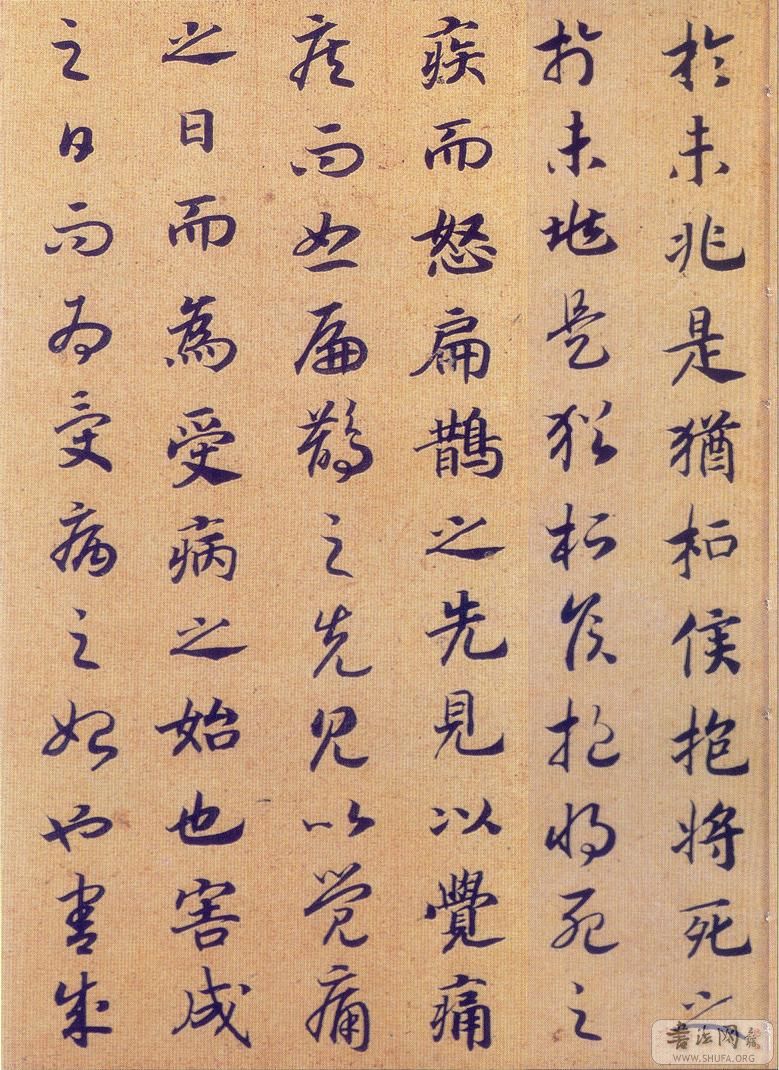 於未兆是猶桓侯抱將死之
於未兆是猶桓侯抱將死之
疾而怒扁鵲之先見以覺痛
疾而怒扁鵲之先見以覺痛
之日而為受病之始也害成
之日而為受病之始也害成
書法网
WWW.SHUFA.ORG